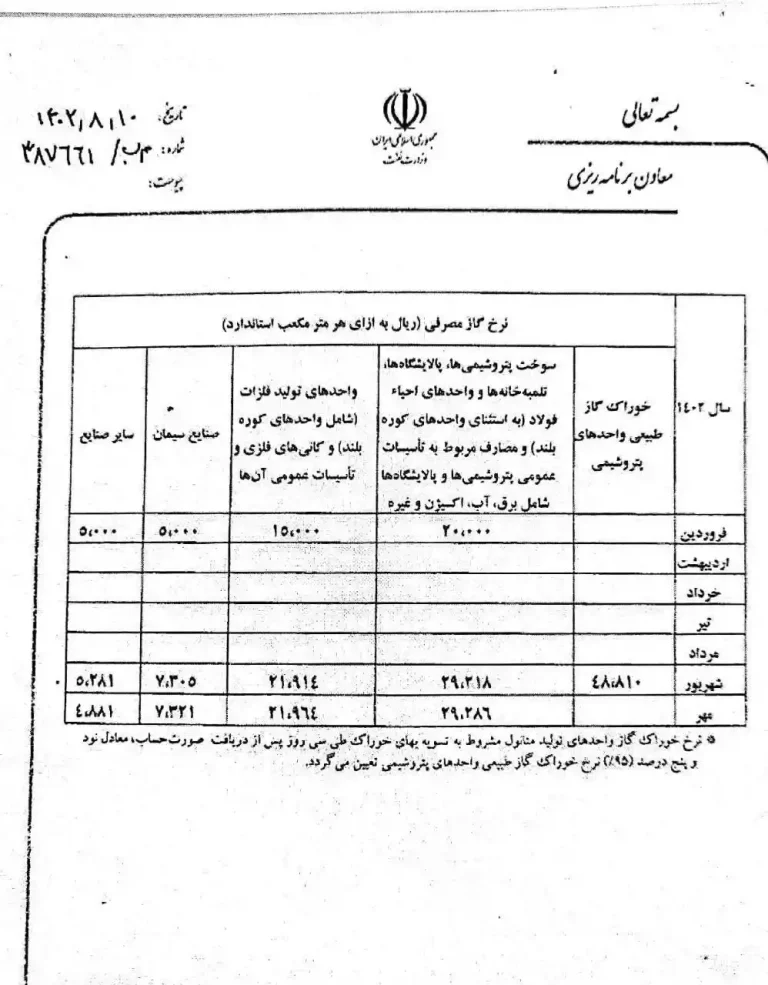 بسمه تعالی
جمهوری اسلامی ایران
وزارت نفت
معاون برنامه ریزی
تاریخ: ۱۴۰۲/۸/۱۰
شماره:
پیوست:
سال ۱٤۰۲
نرخ گاز مصرفی (ریال به ازای هر متر مکعب استاندارد)
خوراک گاز
طبیعی واحدهای
پتروشیمی
سوخت پتروشیمی‌ها، پالایشگاه‌ها،
تلمبه‌خانه‌ها و واحدهای احیاء
فولاد (به استثنای واحدهای کوره
بلند) و مصارف مربوط به تأسیسات
عمومی پتروشیمی‌ها و پالایشگاه‌ها
شامل برق، آب، اکسیژن و غیره
واحدهای تولید فلزات
(شامل واحدهای کوره
بلند) و کانی‌های فلزی و
تأسیسات عمومی آن‌ها
صنایع سیمان
سایر صنایع
فروردین ۲۰،۰۰۰ ۱۵،۰۰۰ ۵،۰۰۰ ۵،۰۰۰
اردیبهشت
خرداد
تیر
مرداد
شهریور ٤۸،۸۱۰ ۲۹،۲۱۸ ۲۱،۹۱٤ ۷،۳۰۵ ۵،۲۸۱
مهر ۲۹،۲۸٦ ۲۱،۹٦٤ ۷،۳۲۱ ٤،۸۸۱
* نرخ خوراک گاز واحدهای تولید متانول مشروط به تسویه بهای خوراک طی سی روز پس از دریافت صورت‌حساب، معادل نود
و پنج درصد (۹۵٪) نرخ خوراک گاز طبیعی واحدهای پتروشیمی تعیین می‌گردد.